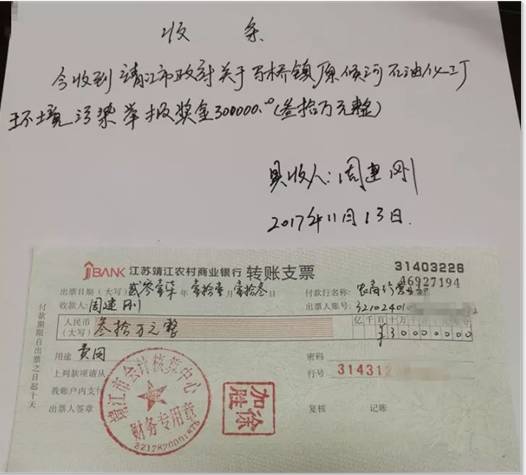 收条
今收到靖江市政府关于马桥镇原侯河石油化工厂
环境污染举报奖金300000.00(叁拾万元整)
具收人:周建刚
2017年11月13日.
BANK 江苏靖江农村商业银行 转账支票
31403226
46927194
出票日期(大写) 贰零壹柒年壹拾壹月壹拾叁日
付款行名称:
收款人:周建刚
出票人账号:32102401
人民币(大写) 叁拾万元整
亿千百十万千百十元角分
¥30000000
用途 费用
密码
上列款项请从
行号 314312
我账户内支付
出票人签章
复核 记账
付款期限自出票之日起十天
靖江市会计核算中心
财务专用章
加徐胜